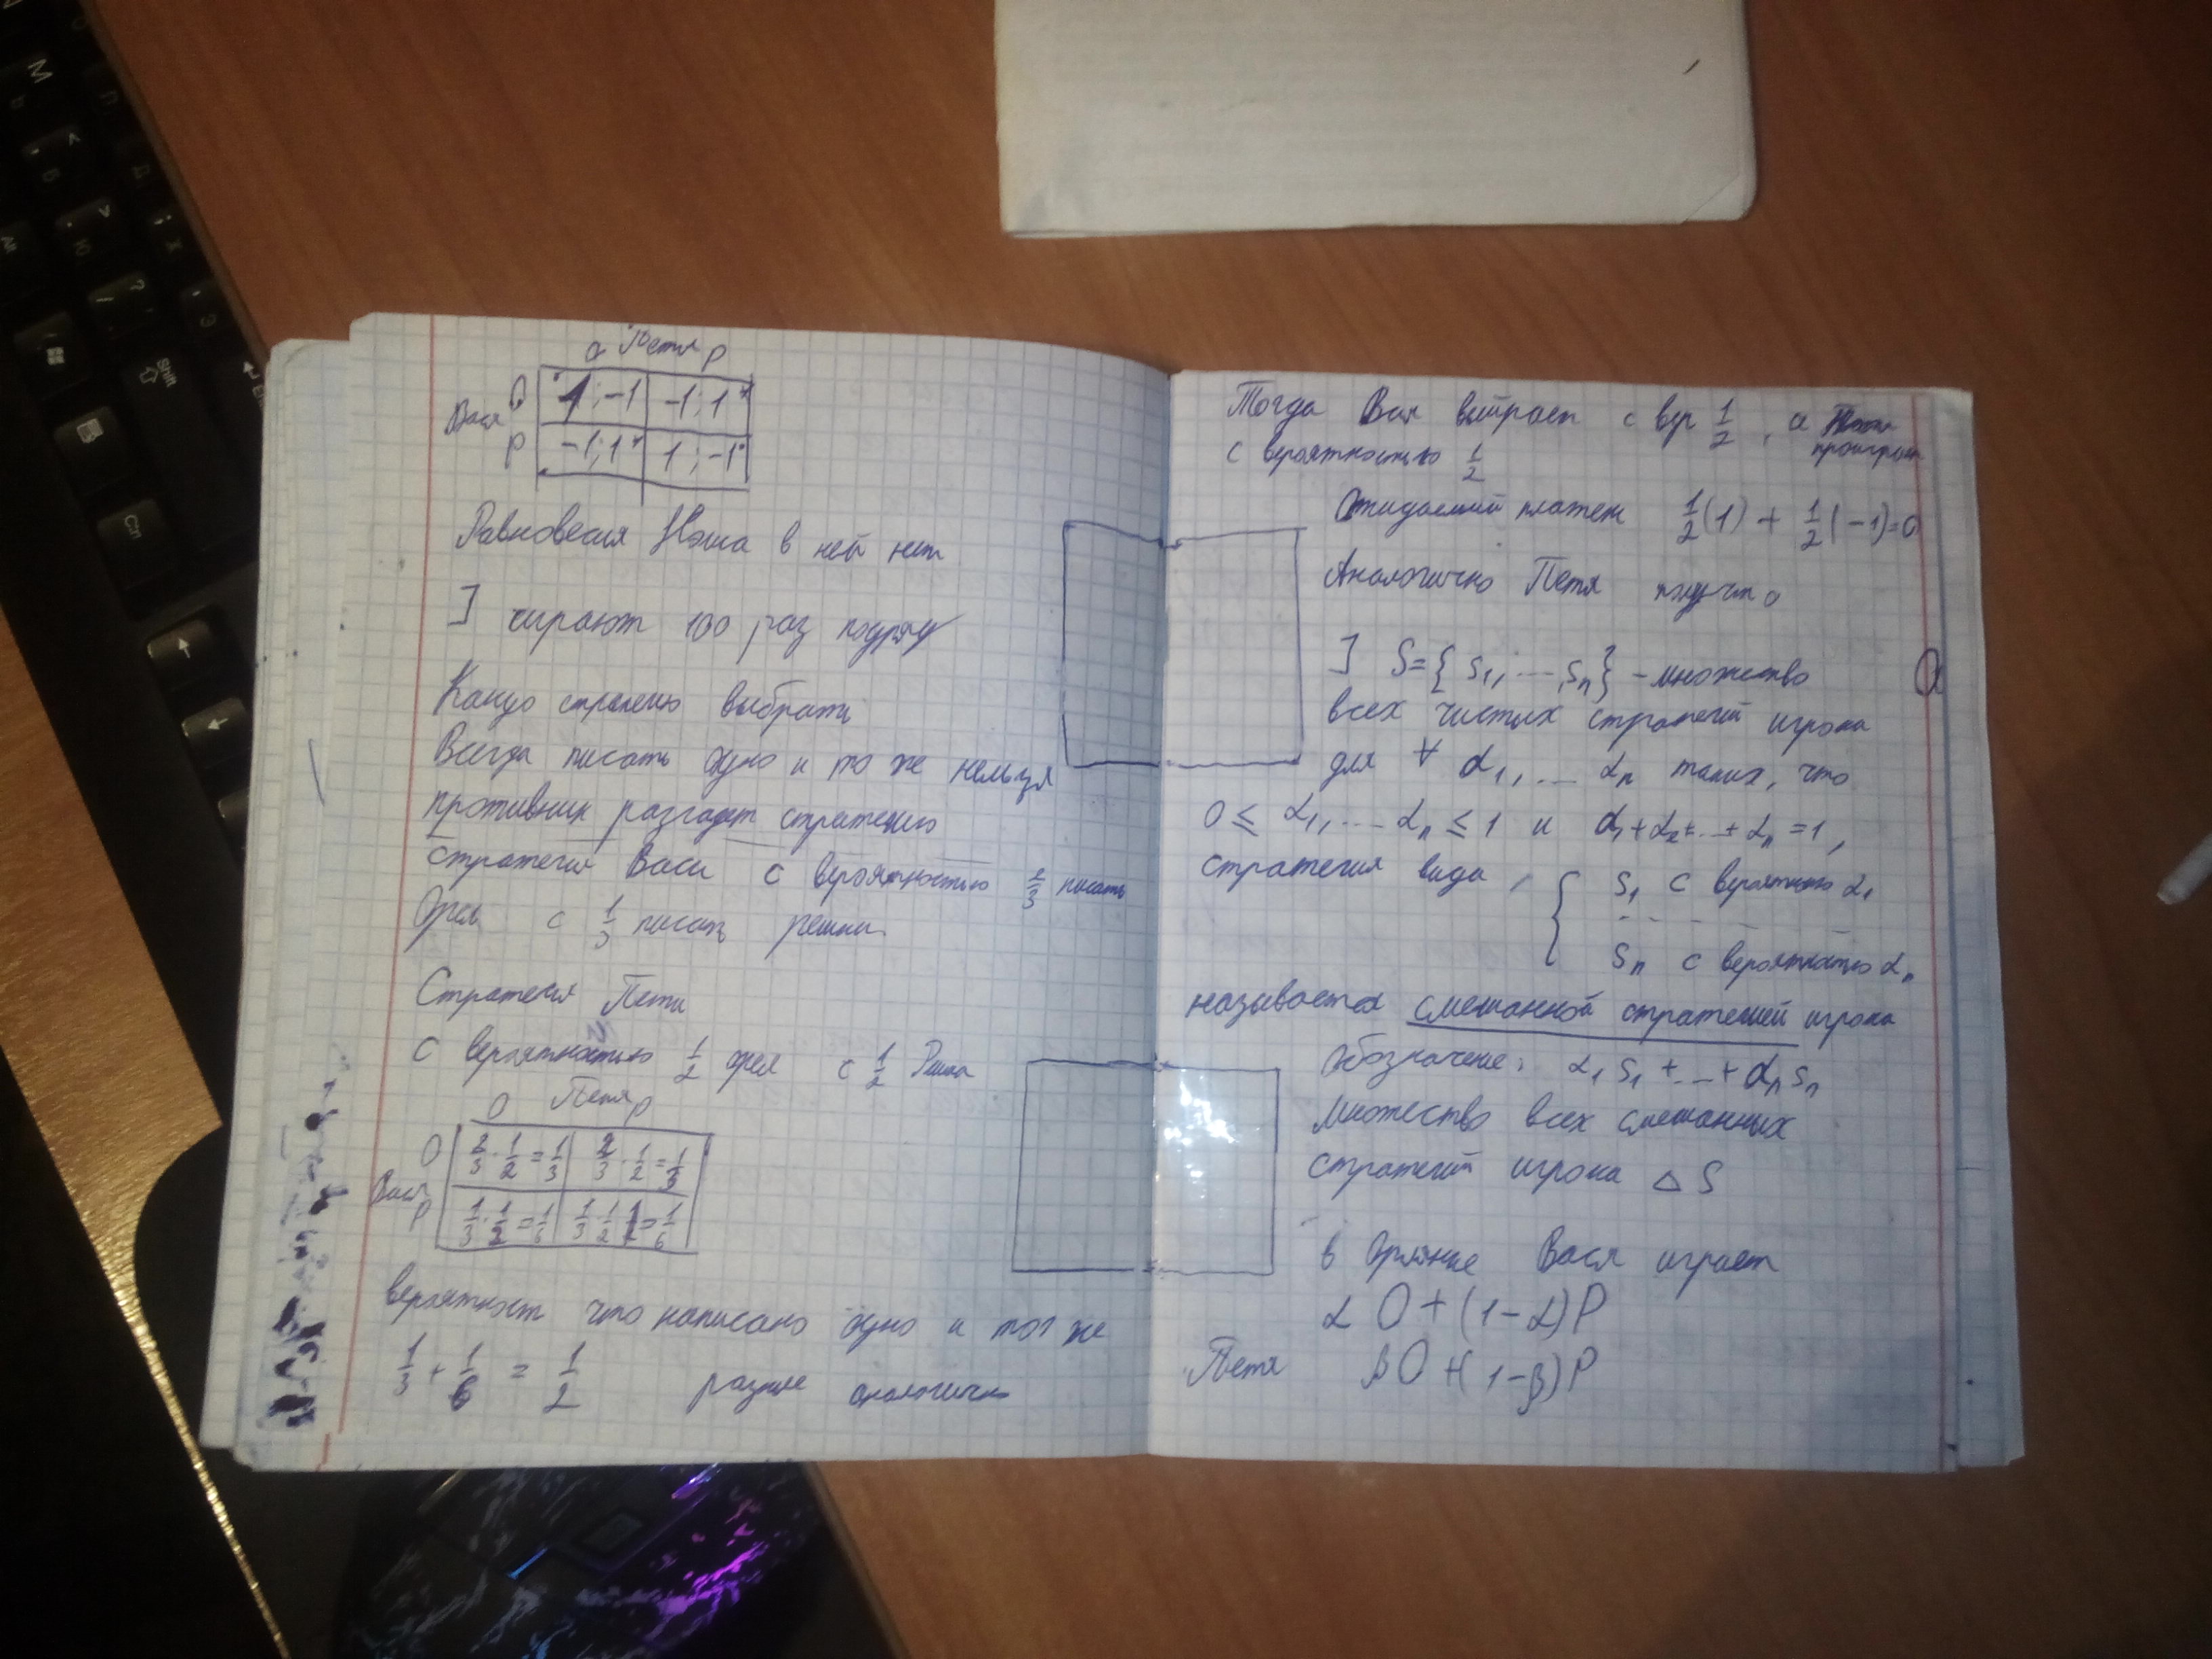 О Петя Р
Вася О 1; -1 -1; 1
Р -1; 1 1; -1
Равновесия Нэша в ней нет
] играют 100 раз подряд
Каную стратегию выбрать
Всегда писать одно и то же нельзя
противник разгадает стратегию
стратегия Васи с вероятностью 2/3 писать
Орел с 1/3 писать решки
Стратегия Пети
с вероятностью 1/2 орел с 1/2 Решка
О Петя Р
О 2/3 · 1/2 = 1/3 2/3 · 1/2 = 1/3
Вася Р 1/3 · 1/2 = 1/6 1/3 · 1/2 = 1/6
вероятность что написано одно и тоже
1/3 + 1/6 = 1/2 разные аналогично
Тогда Вася выйграет с вер 1/2, а Петя
с вероятностью 1/2 проиграет
Ожидаемый платеж 1/2(1) + 1/2(-1)=0
Аналогично Петя получит 0
] S={s₁, ..., sₙ} - множество
всех чистых стратегий игрока
для ∀ α₁, ... αₙ таких, что
0 ≤ α₁, ... αₙ ≤ 1 и α₁+α₂+...+αₙ=1,
стратегия вида { s₁ с вероятностью α₁
- - - -
sₙ с вероятностью αₙ
называется смешанной стратегией игрока
Обозначение: α₁s₁+...+αₙsₙ
Множество всех смешанных
стратегий игрока ΔS
в Орлянке Вася играет
αО+(1-α)Р
Петя βО+(1-β)Р